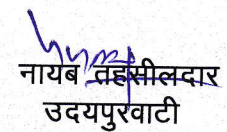 नायब तहसीलदार
उदयपुरवाटी